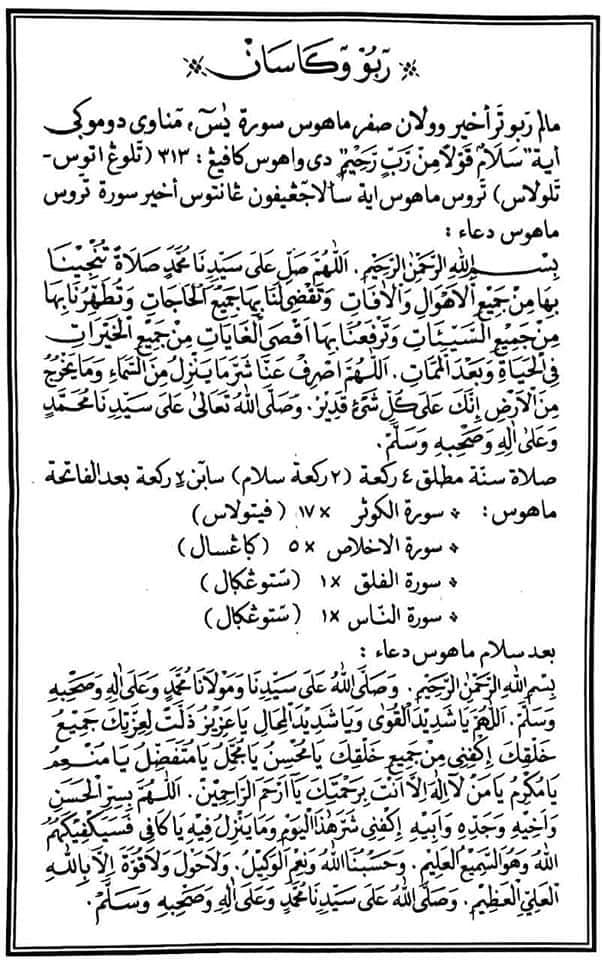 ربوْ وكاسانْ
مالم ربو تَر أخير وولان صفر ماهوس سورة يٰسٓ، مناوى دوموكي
أية "سَلَامٌ قَوْلًا مِنْ رَبٍّ رَحِيْمٍ" دى واهوس كافيڠ : ٣١٣ (تلوڠ اتوس-
تلولاس) تروس ماهوس اية سألاجڠيفون ڠانتوس أخير سورة تروس
ماهوس دعاء :
بِسْمِ اللهِ الرَّحْمٰنِ الرَّحِيْمِ. اَللّٰهُمَّ صَلِّ عَلَى سَيِّدِنَا مُحَمَّدٍ صَلَاةً تُنْجِيْنَا
بِهَا مِنْ جَمِيْعِ الْاَهْوَالِ وَالْاٰفَاتِ وَتَقْضِيْ لَنَا بِهَا جَمِيْعَ الْحَاجَاتِ وَتُطَهِّرُنَا بِهَا
مِنْ جَمِيْعِ السَّيِّئَاتِ وَتَرْفَعُنَا بِهَا اَقْصَى الْغَايَاتِ مِنْ جَمِيْعِ الْخَيْرَاتِ
فِي الْحَيَاةِ وَبَعْدَ الْمَمَاتِ. اَللّٰهُمَّ اصْرِفْ عَنَّا شَرَّ مَا يَنْزِلُ مِنَ السَّمَاءِ وَمَا يَخْرُجُ
مِنَ الْاَرْضِ اِنَّكَ عَلَى كُلِّ شَيْءٍ قَدِيْرٌ. وَصَلَّى اللهُ تَعَالَى عَلَى سَيِّدِنَا مُحَمَّدٍ
وَعَلَى اٰلِهِ وَصَحْبِهِ وَسَلَّمَ.
صلاة سنة مطلق ٤ ركعة (٢ ركعة سلام) سابن٢ ركعة بعد الفاتحة
ماهوس : * سورة الكوثر ×١٧ (فيتولاس)
* سورة الاخلاص ×٥ (ڬاڠسال)
* سورة الفلق ×١ (ستوڠڬال)
* سورة الناس ×١ (ستوڠڬال)
بعد سلام ماهوس دعاء :
بِسْمِ اللهِ الرَّحْمٰنِ الرَّحِيْمِ. وَصَلَّى اللهُ عَلَى سَيِّدِنَا وَمَوْلَانَا مُحَمَّدٍ وَعَلَى اٰلِهِ وَصَحْبِهِ
وَسَلَّمَ. اَللّٰهُمَّ يَا شَدِيْدَ الْقُوَى وَيَا شَدِيْدَ الْمِحَالِ يَا عَزِيْزُ ذَلَّتْ لِعِزَّتِكَ جَمِيْعُ
خَلْقِكَ اِكْفِنِيْ مِنْ جَمِيْعِ خَلْقِكَ يَا مُحْسِنُ يَا مُجَمِّلُ يَا مُتَفَضِّلُ يَا مُنْعِمُ
يَا مُكْرِمُ يَا مَنْ لَا اِلٰهَ اِلَّا اَنْتَ بِرَحْمَتِكَ يَا اَرْحَمَ الرَّاحِمِيْنَ. اَللّٰهُمَّ بِسِرِّ الْحَسَنِ
وَاَخِيْهِ وَجَدِّهِ وَاَبِيْهِ اِكْفِنِيْ شَرَّ هٰذَا الْيَوْمِ وَمَا يَنْزِلُ فِيْهِ يَا كَافِي فَسَيَكْفِيْكَهُمُ
اللهُ وَهُوَ السَّمِيْعُ الْعَلِيْمُ. وَحَسْبُنَا اللهُ وَنِعْمَ الْوَكِيْلُ. وَلَا حَوْلَ وَلَا قُوَّةَ اِلَّا بِاللهِ
الْعَلِيِّ الْعَظِيْمِ. وَصَلَّى اللهُ عَلَى سَيِّدِنَا مُحَمَّدٍ وَعَلَى اٰلِهِ وَصَحْبِهِ وَسَلَّمَ.